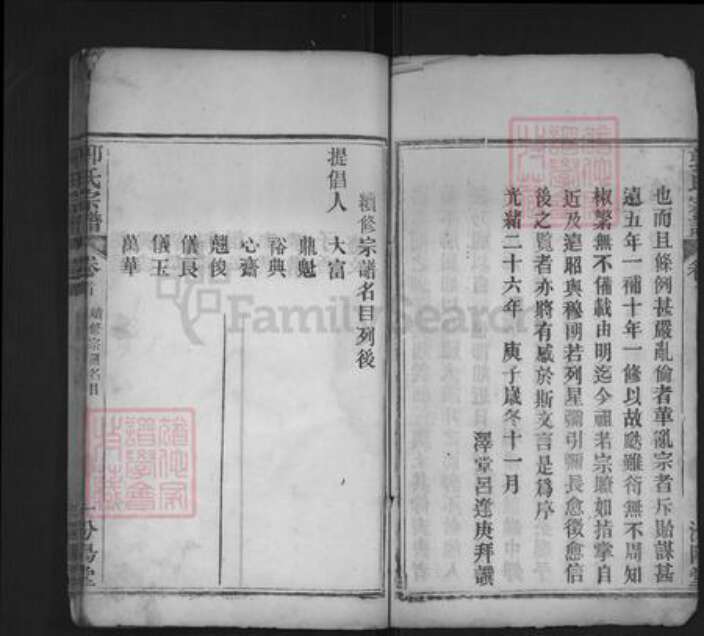 也而且條例甚嚴亂倫者革亂宗者斥貽謀甚
遠五年一補十年一修以故瓞雖衍無不周知
椒繁無不備載由明迄今祖若宗瞭如指掌自
近及遠昭與穆朗若列星彌引彌長愈徵愈信
後之覽者亦將有感於斯文言是為序
光緒二十六年 庚子歲冬十一月
澤堂呂逢庚拜譔
續修宗譜名目列後
提倡人 大富
鼎魁
裕典
心齋
魁俊
儀長
儀玉
萬華
郭氏宗譜 卷首 續修宗譜名目 一 汾陽堂
FamilySearch